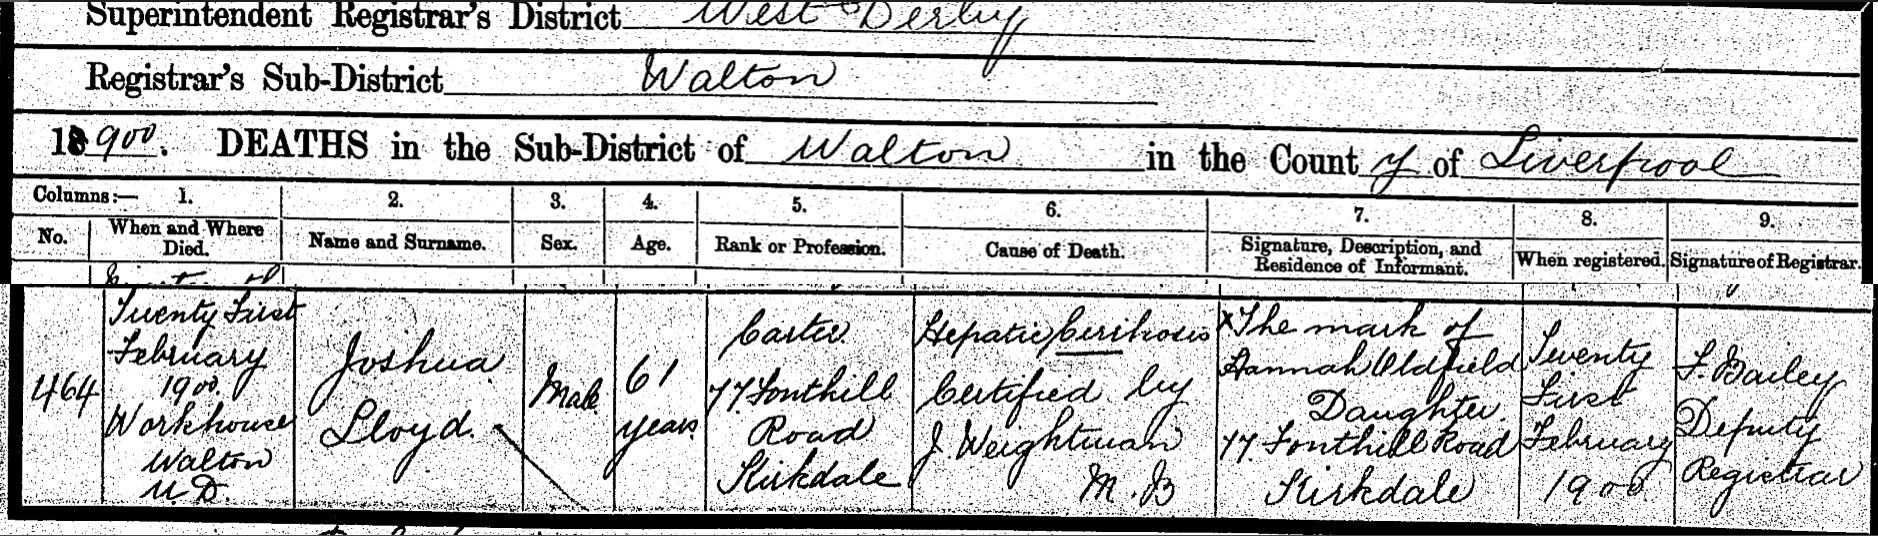 Superintendent Registrar's District West Derby
Registrar's Sub-District Walton
1900. DEATHS in the Sub-District of Walton in the County of Liverpool
Columns:— 1. 2. 3. 4. 5. 6. 7. 8. 9.
No.
When and Where
Died.
Name and Surname.
Sex.
Age.
Rank or Profession.
Cause of Death.
Signature, Description, and
Residence of Informant.
When registered.
Signature of Registrar.
464
Twenty First
February
1900.
Workhouse
Walton
U.D.
Joshua
Lloyd.
Male
61
years
Carter
77 Fonthill
Road
Kirkdale
Hepatic Cirrhosis
Certified by
J. Weightman
M.B
X The mark of
Hannah Oldfield
Daughter
77. Fonthill Road
Kirkdale
Twenty
First
February
1900
F. Bailey
Deputy
Registrar